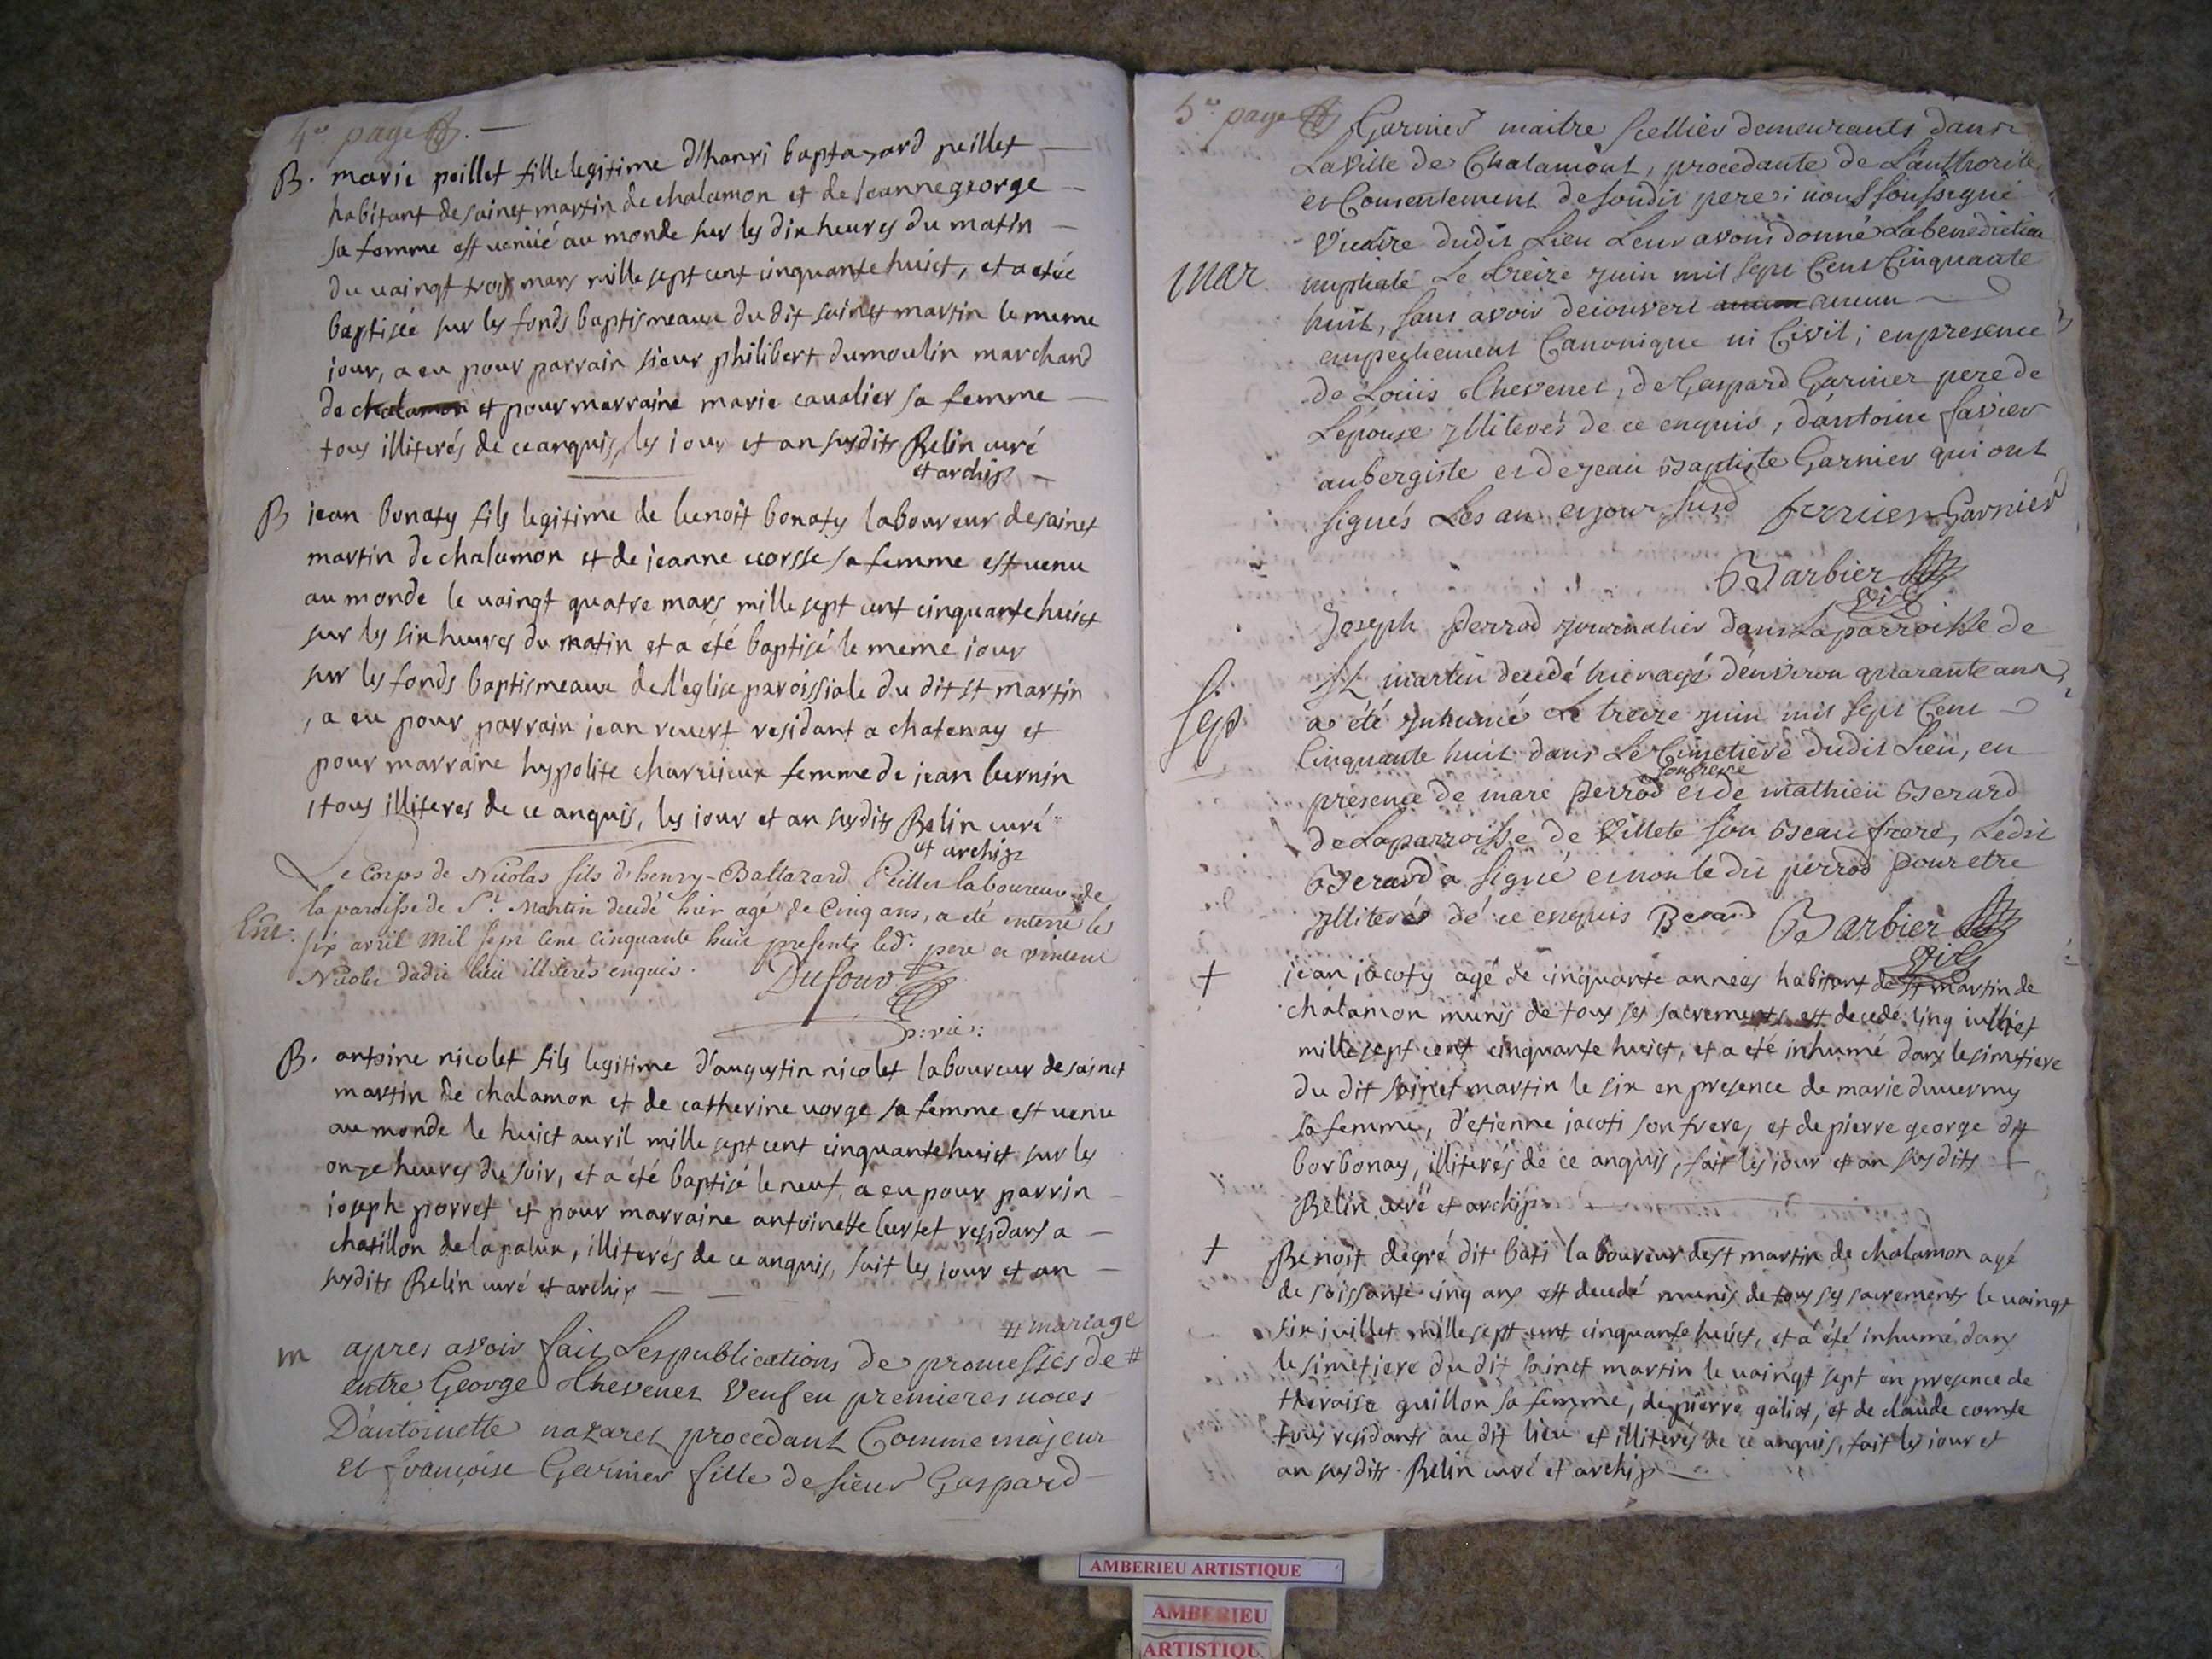 4e page
B. marie peillet fille legitime d'hanri baptazard peillet
habitant de sainct martin de chalamon et de Jeanne george
sa femme est venüé au monde sur les dix heures du matin
du vaingt trois mars mille sept cent cinquante huict, et a etée
baptisée sur les fonds baptismeaux du dit sainct martin le meme
jour, a eu pour parrain sieur philibert dumoulin marchand
de chalamon et pour marraine marie cavalier sa femme
tous illiterés de ce anquis, les iour et an susdits Belin curé
et archip
B jean bonaty fils legitime de benoit bonaty laboureur de sainct
martin de chalamon et de jeanne vorsse sa femme est venu
au monde le vaingt quatre mars mille sept cent cinquante huict
sur les six heures du matin et a été baptisé le meme iour
sur les fonds baptismeaux de l'eglise paroissiale du dit st martin
, a eu pour parrain jean revert residant a chatenay et
pour marraine hypolite charrieux femme de jean burnin
, tous illiteres de ce anquis, les iour et an susdits Belin curé
et archip
Le Corps de Nicolas fils d'henry-Baltazard Peillet laboureur de
la paroisse de St. Martin decedé hier agé de Cinq ans, a été enterré le
Ent. six avril Mil sept cent cinquante huit presents led. pere et vincent
Nicolet dudit lieu illiterés enquis. Dufour
p: vic:
B. antoine nicolet fils legitime d'augustin nicolet laboureur de sainct
martin de chalamon et de catherine vorge sa femme est venu
au monde le huict avril mille sept cent cinquante huict sur les
onze heures du soir, et a été baptisé le neuf, a eu pour parrin
joseph porret et pour marraine antoinette burtet residans a
chatillon de la palux, illiterés de ce anquis, fait les iour et an
susdits Belin curé et archip
# mariage
m apres avoir fait Les publications de promesses de #
entre George Thevenet Veuf en premieres noces
D'antoinette nazaret procedant Comme majeur
et françoise Garnier fille de sieur Gaspard
5e page
Garnier maitre sellier demeurants dans
La Ville de Chalamont, procedante de L'autthorité
et Consentement de sondit pere; nous soussigné
Vicaire dudit Lieu Leur avons donné La benediction
mar. nuptiale Le treize juin mil sept Cent Cinquante
huit, sans avoir decouvert aucun aucun
empechement Canonique ni Civil; en presence
de Loüis Thevenet, de Gaspard Garnier pere de
Lépouse illiterés de ce enquis, d'antoine favier
aubergiste et de jean Baptiste Garnier qui ont
signés Les an et jour susd ferrier Garnier
Barbier
vic
Joseph Perrod journalier dans La parroisse de
St martin decedé hier agé d'environ quarante ans
Sep a été inhumé Le treize juin mil sept Cent
Cinquante huit dans Le Cimetiere dudit Lieu, en
son frere
presence de marc Perrod et de mathieu Berard
de La parroisse de Villete son Beau frere, Ledit
Berard a signé et non le dit perrod pour etre
illiterés de ce enquis Berard Barbier
vic
† jean jacoty agé de cinquante années habitant de st martin de
chalamon munis de tous ses sacrements est decedé cinq juilliet
mille sept cent cinquante huict, et a eté inhumé dans le simetiere
du dit sainct martin le six en presence de marie duvermy
sa femme, d'etienne jacoti son frere, et de pierre george dit
borbonay, illiterés de ce anquis, fait les iour et an susdits
Belin curé et archip
† Benoit degré dit bati laboureur de st martin de chalamon agé
de soissante cinq ans est decedé munis de tous ses sacrements le vaingt
six juillet mille sept cent cinquante huict, et a été inhumé dans
le simetiere du dit sainct martin le vaingt sept en presence de
theraise guillon sa femme, de pierre galiot, et de claude comte
tous residants au dit lieu et illiterés de ce anquis, fait les iour et
an susdits Belin curé et archip
AMBERIEU ARTISTIQUE
AMBERIEU
ARTISTIQU